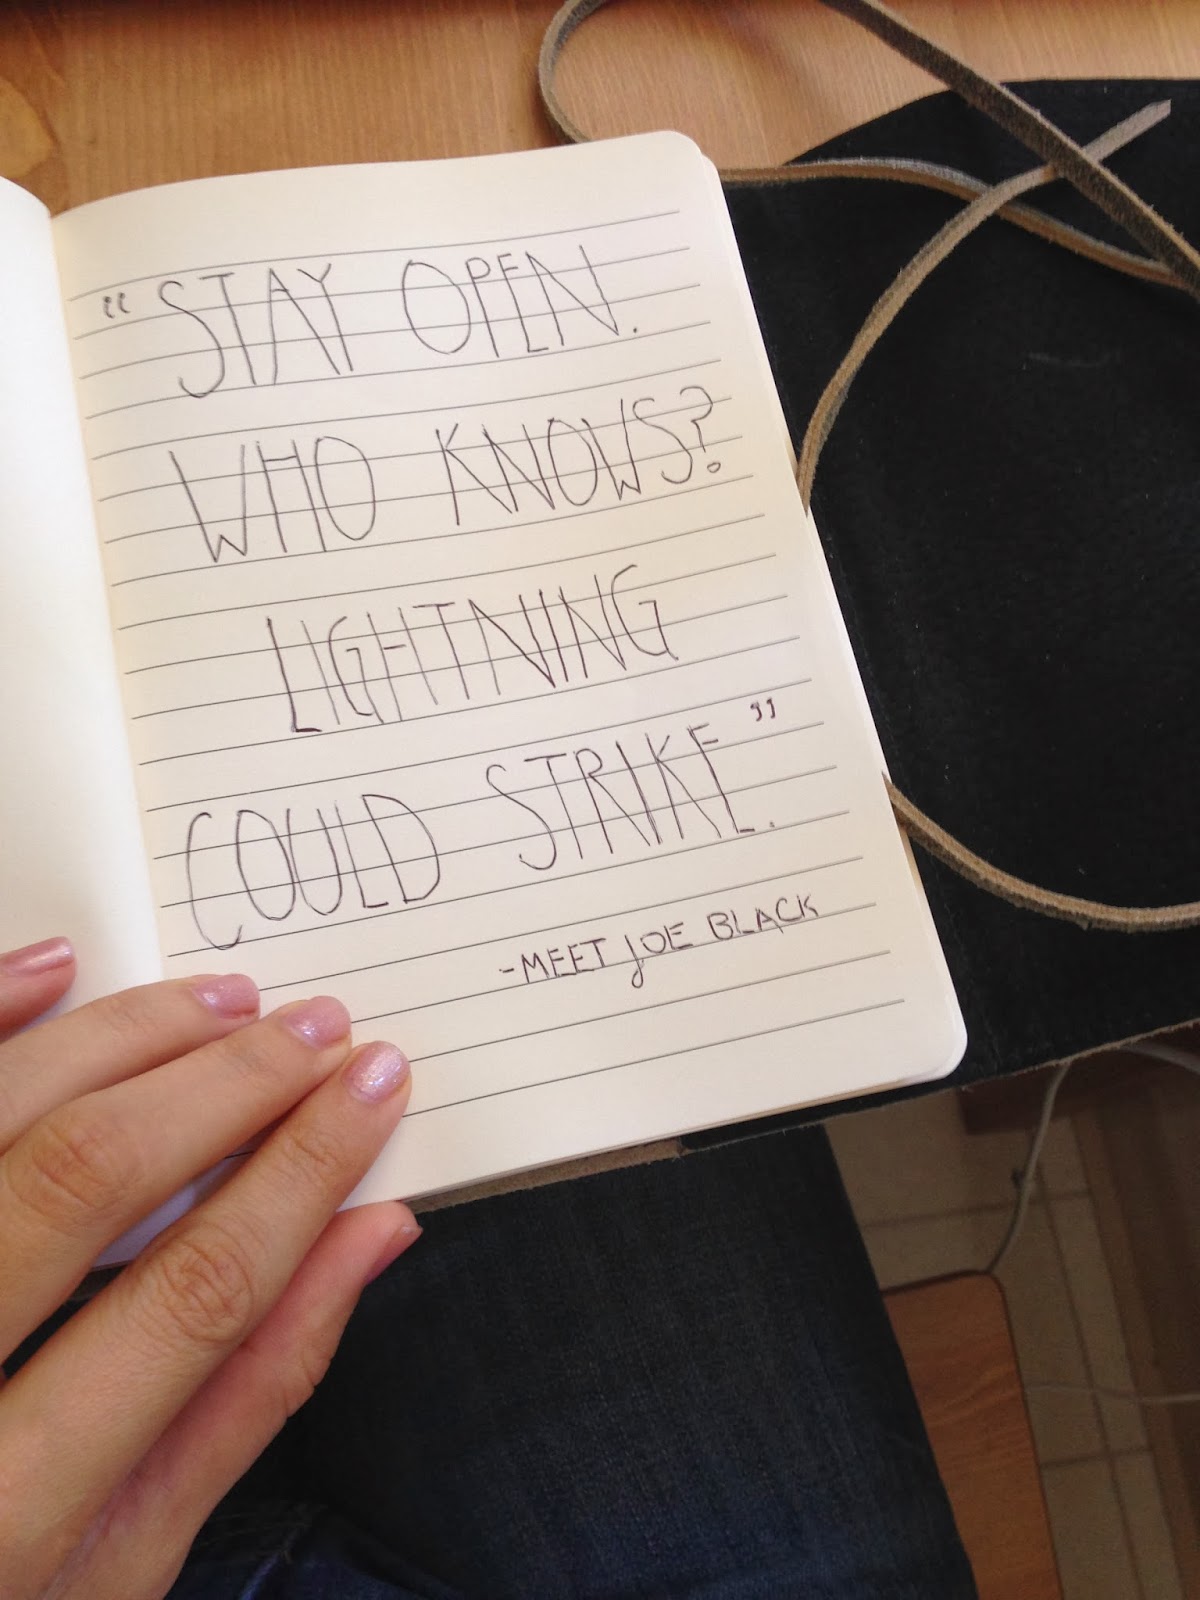 “STAY OPEN.
WHO KNOWS?
LIGHTNING
COULD STRIKE”.
-MEET JOE BLACK